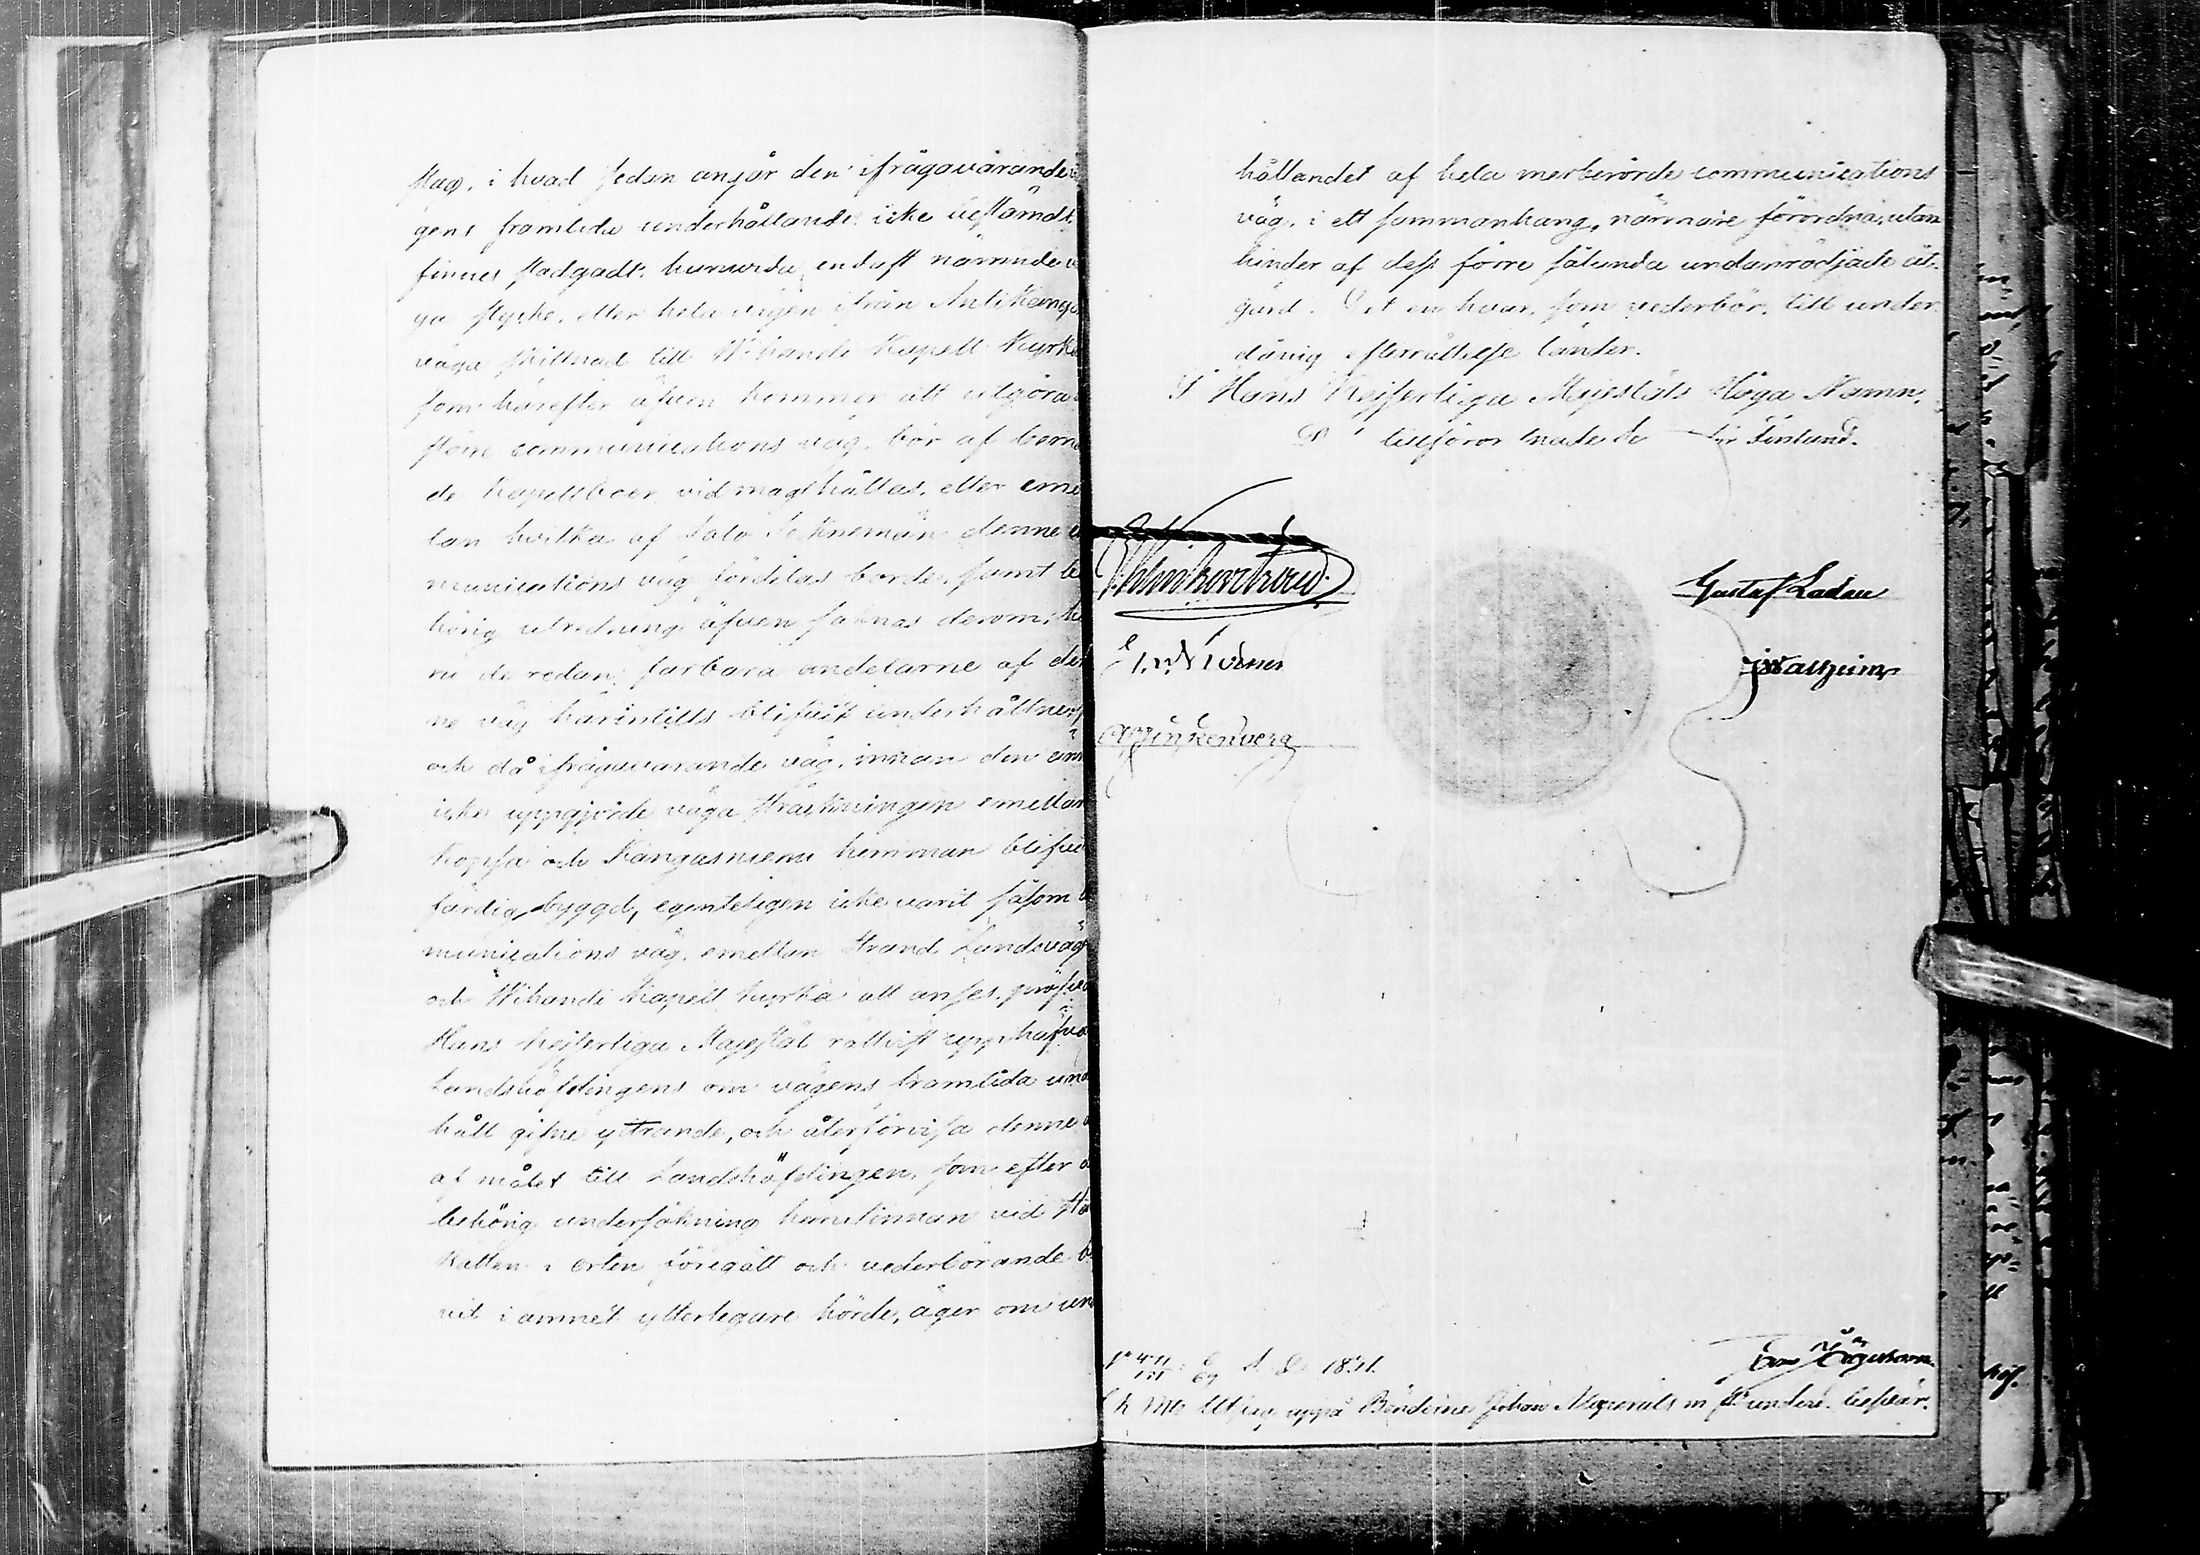 slag, i hvad sedan angår den ifrågavarande
gens framtida underhållande icke bestämdt
finnes stadgadt, huruvida endast nämnde
ga stycke, eller hela vägen ifrån Antikangas
väga skillnad till Wihandi Kapell Kyrka
som härefter äfven kommer att utgöra
större communications väg, bör af bem
de Kapellboer vid magt hållas, eller eme
lan hvilka af Salo Soknemän denne
munications väg fördelas borde, samt be
hörig utredning äfven saknas derom, hu
ru de redan farbara andelarne af den
ne väg härintills blifvit underhållne,
och då ifrågavarande väg, innan den
icke uppgjorde väga sträckningen emellan
kopsa och Kangasniemi hemman blifvit
färdig byggd, egenteligen icke varit såsom
munications väg, emellan Strand Landsvägen
och Wihandi Kapell kyrka att anses, pröfvar
Hans Kejserliga Majestät rättvist upphäfva
Landshöfdingens om vägens framtida und
håll gifne yttrande, och återförvisa denne
af målet till Landshöfdingen, som efter
behörig undersökning härutinnan vid Hä
Rätten i orten föregått och vederbörande
vit i ämnet ytterligare hörde, äger om und
hållandet af hela merberörde communications
väg, i ett sammanhang, närmare förordna, utan
hinder af dess förre sålunda undanrödjade åt-
gärd. Det en hvar, som vederbör, till under
dånig efterrättelse länder.
I Hans Kejserliga Majestäts Höga Namn,
Dess tillförordnade Se för Finland.
Gustaf Ladau
J Walheim
A Winkenberg
S. D. 1831.
Utslag uppå Bönderne Johan m fl underd. besvär.